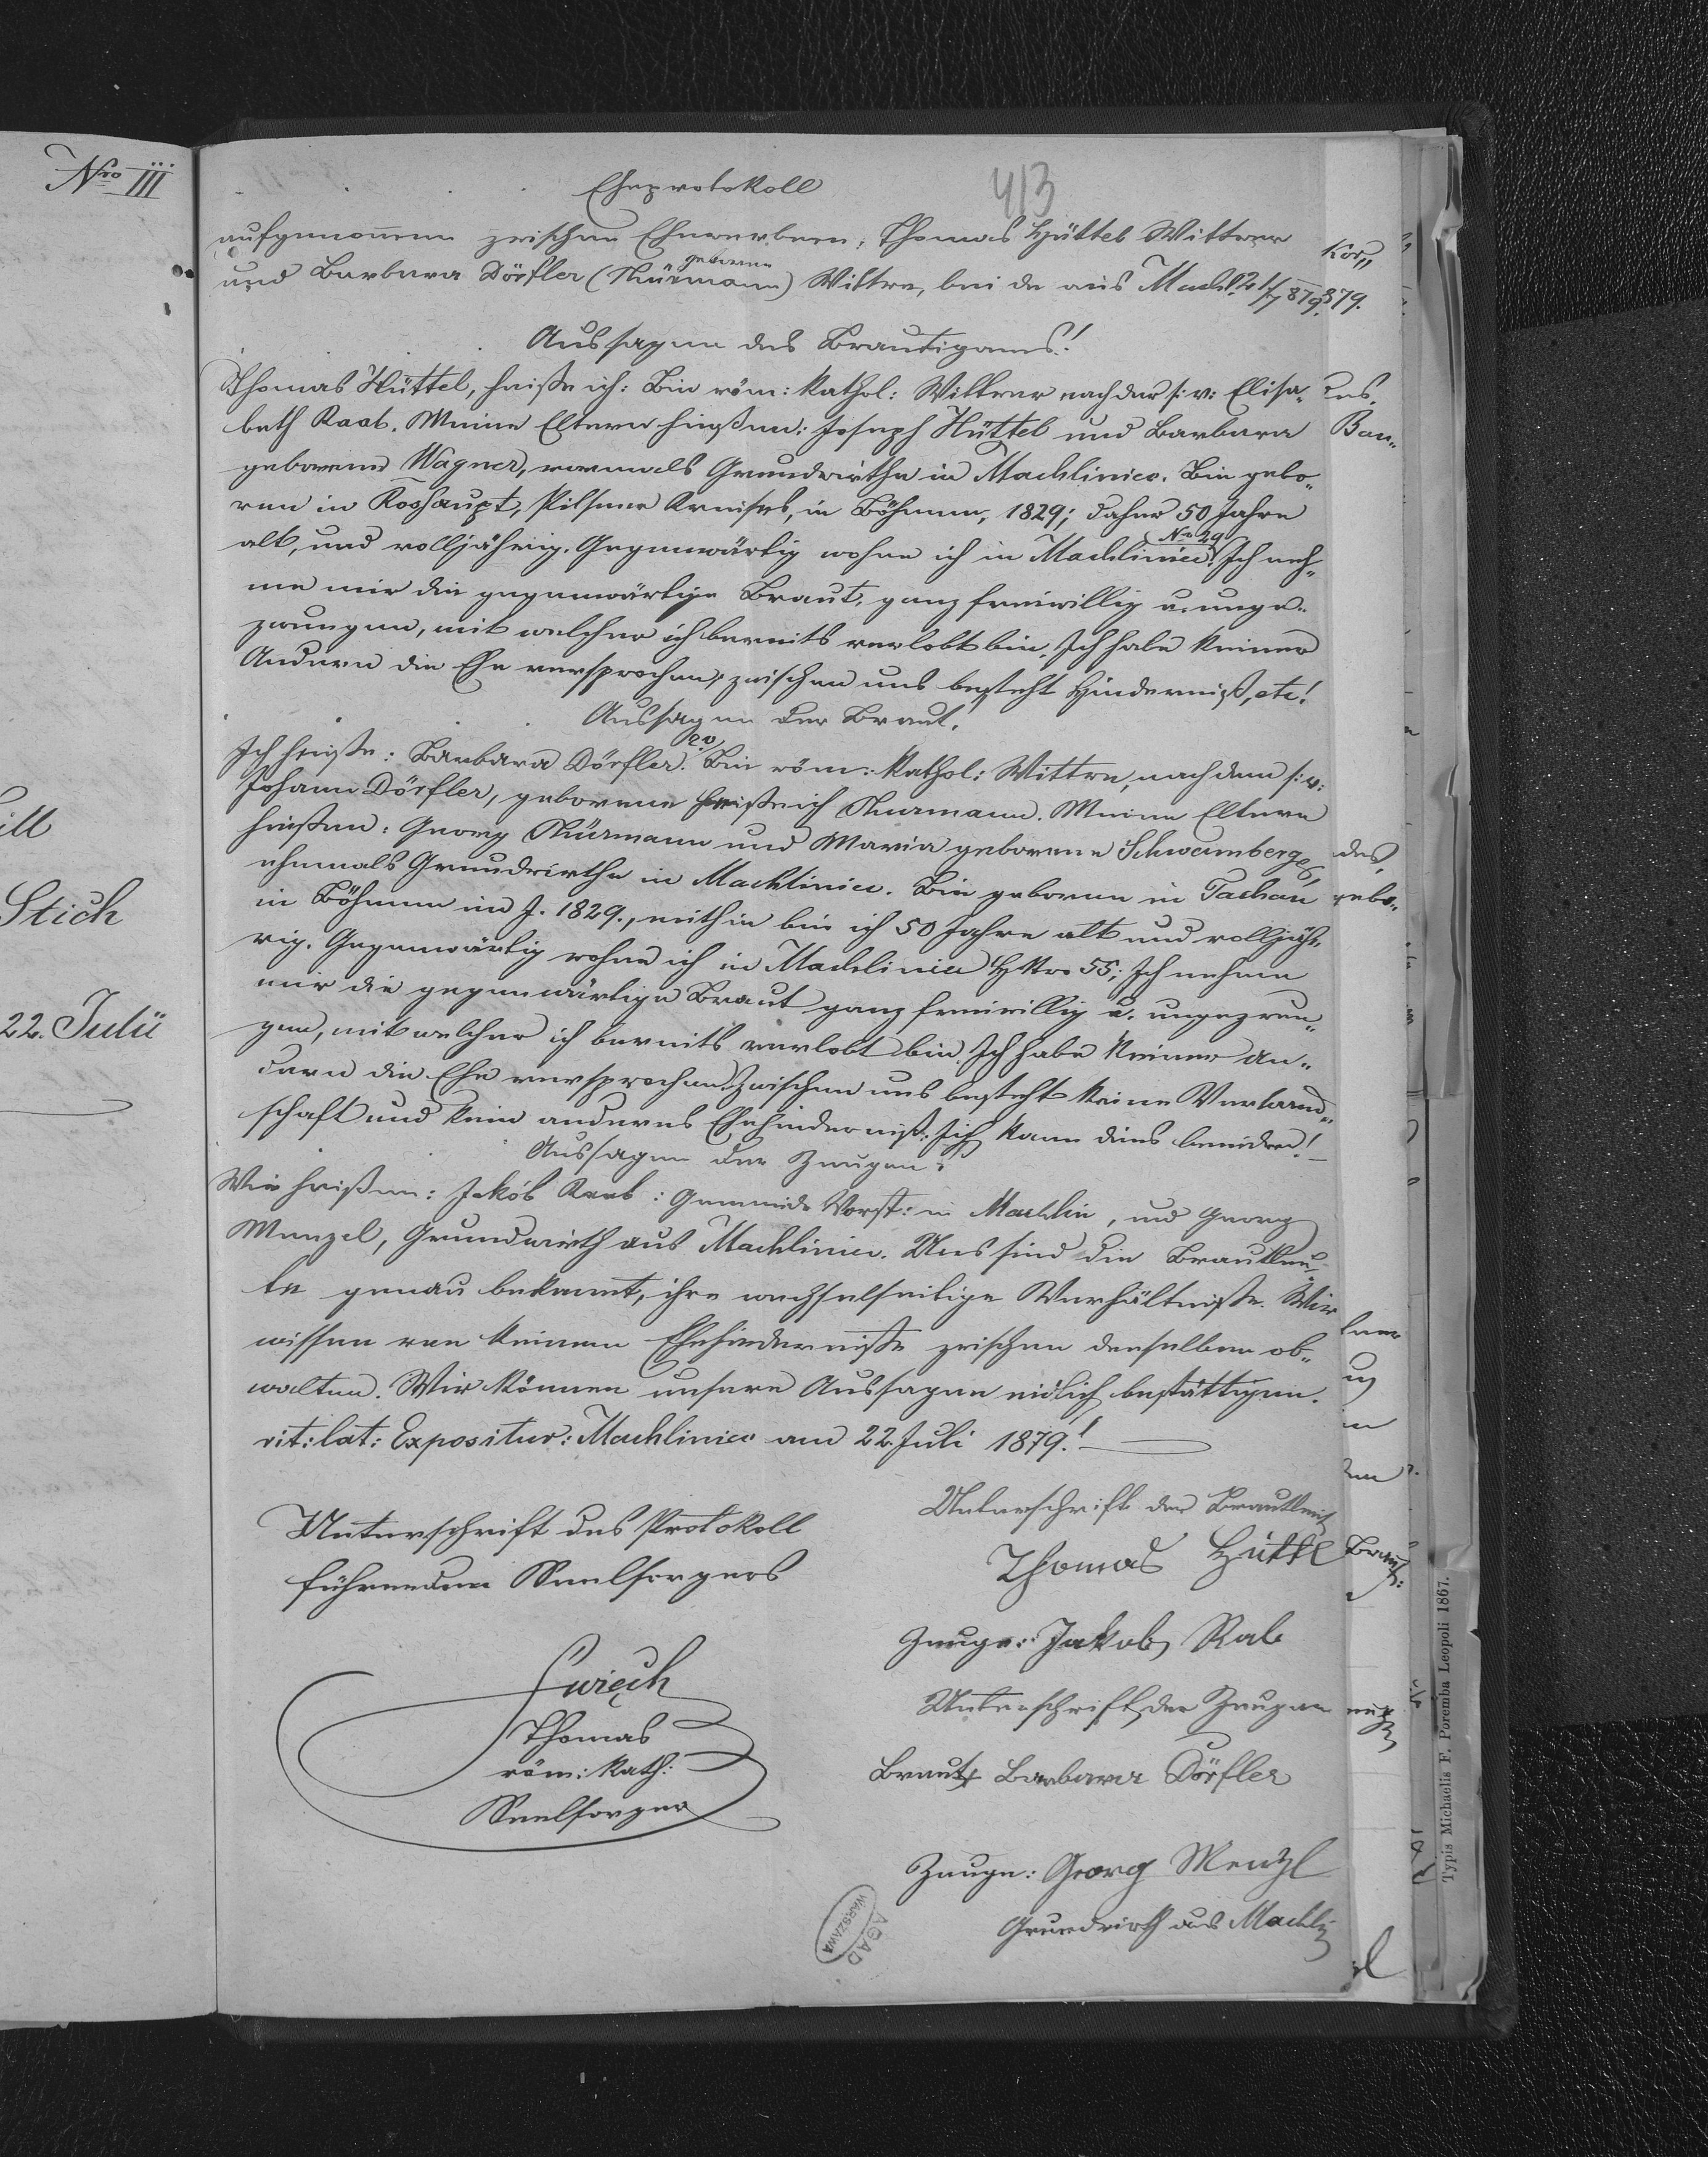 Nro III
Eheprotokoll
413
aufgenommen zwischen Ehewerbern: Thomas Hüttel Wittwer
und Barbara Dörfler (geborene Thürmann) Wittwe, beide aus Machl. 21/7 879.
Aussagen des Brautigams!
Thomas Hüttel, heiße ich: Bin röm: kathol: Wittwer nach der s: v: Elisa-
beth Raab. Meine Eltern hießen: Joseph Hüttel und Barbara
geborene Wagner, vormals Grundwirthe in Machliniec. Bin gebo-
ren in Roshaupt, Pilsner Kreises, in Böhmen, 1829; daher 50 Jahre
alt, und volljährig. Gegenwärtig wohne ich in Machliniec No 29. Ich neh-
me mir die gegenwärtige Braut, ganz freiwillig u. unge-
zwungen, mit welcher ich bereits verlobt bin. Ich habe keiner
Andern die Ehe versprochen, zwischen uns besteht Hinderniß, etc!
Aussagen der Braut!
Ich heiße: Barbara Dörfler. Bin röm: kathol: Wittwe, nach dem s: v:
Johann Dörfler, geborene heiße ich Thurmann. Meine Eltern
hießen: Georg Thürmann und Maria geborene Schwamberger,
ehemals Grundwirthe in Machliniec. Bin geboren in Tachau
in Böhmen im J. 1829., mithin bin ich 50 Jahre alt und volljäh-
rig. Gegenwärtig wohne ich in Machliniec HNro 55; Ich nehme
mir die gegenwärtige Braut ganz freiwillig u. ungezwun-
gen, mit welcher ich bereits verlobt bin. Ich habe keiner An-
dern die Ehe versprochen. Zwischen uns besteht keine Verwand-
schaft und kein anderes Ehehinderniß. Ich kann dies beeiden!
Aussagen der Zeugen:
Wir heißen: Jakób Raab: Gemeinde Vorst: in Machlin, und Georg
Menzel, Grundwirth aus Machliniec. Uns sind die Brautleu-
te genau bekannt, ihre wechselseitige Verhältniße. Wir
wissen von keinem Ehehinderniße zwischen denselben ob-
walten. Wir können unsere Aussagen eidlich bestättigen.
rit: lat: Expositur: Machliniec am 22. Juli 1879!
Unterschrift des Protokoll
führenden Seelsorgers
Swięch
Thomas
röm: kath:
Seelsorger
Unterschrift der Brautleute
Thomas Hüttl
Zeuge: Jakob Rab
Unterschrift der Zeugen
Braut Barbara Dörfler
Zeuge: Georg Menzl
Grundwirth aus Machli
AGAD
WARSZAWA
Stich
22. Julii
Typis Michaelis F. Poremba Leopoli 1867.